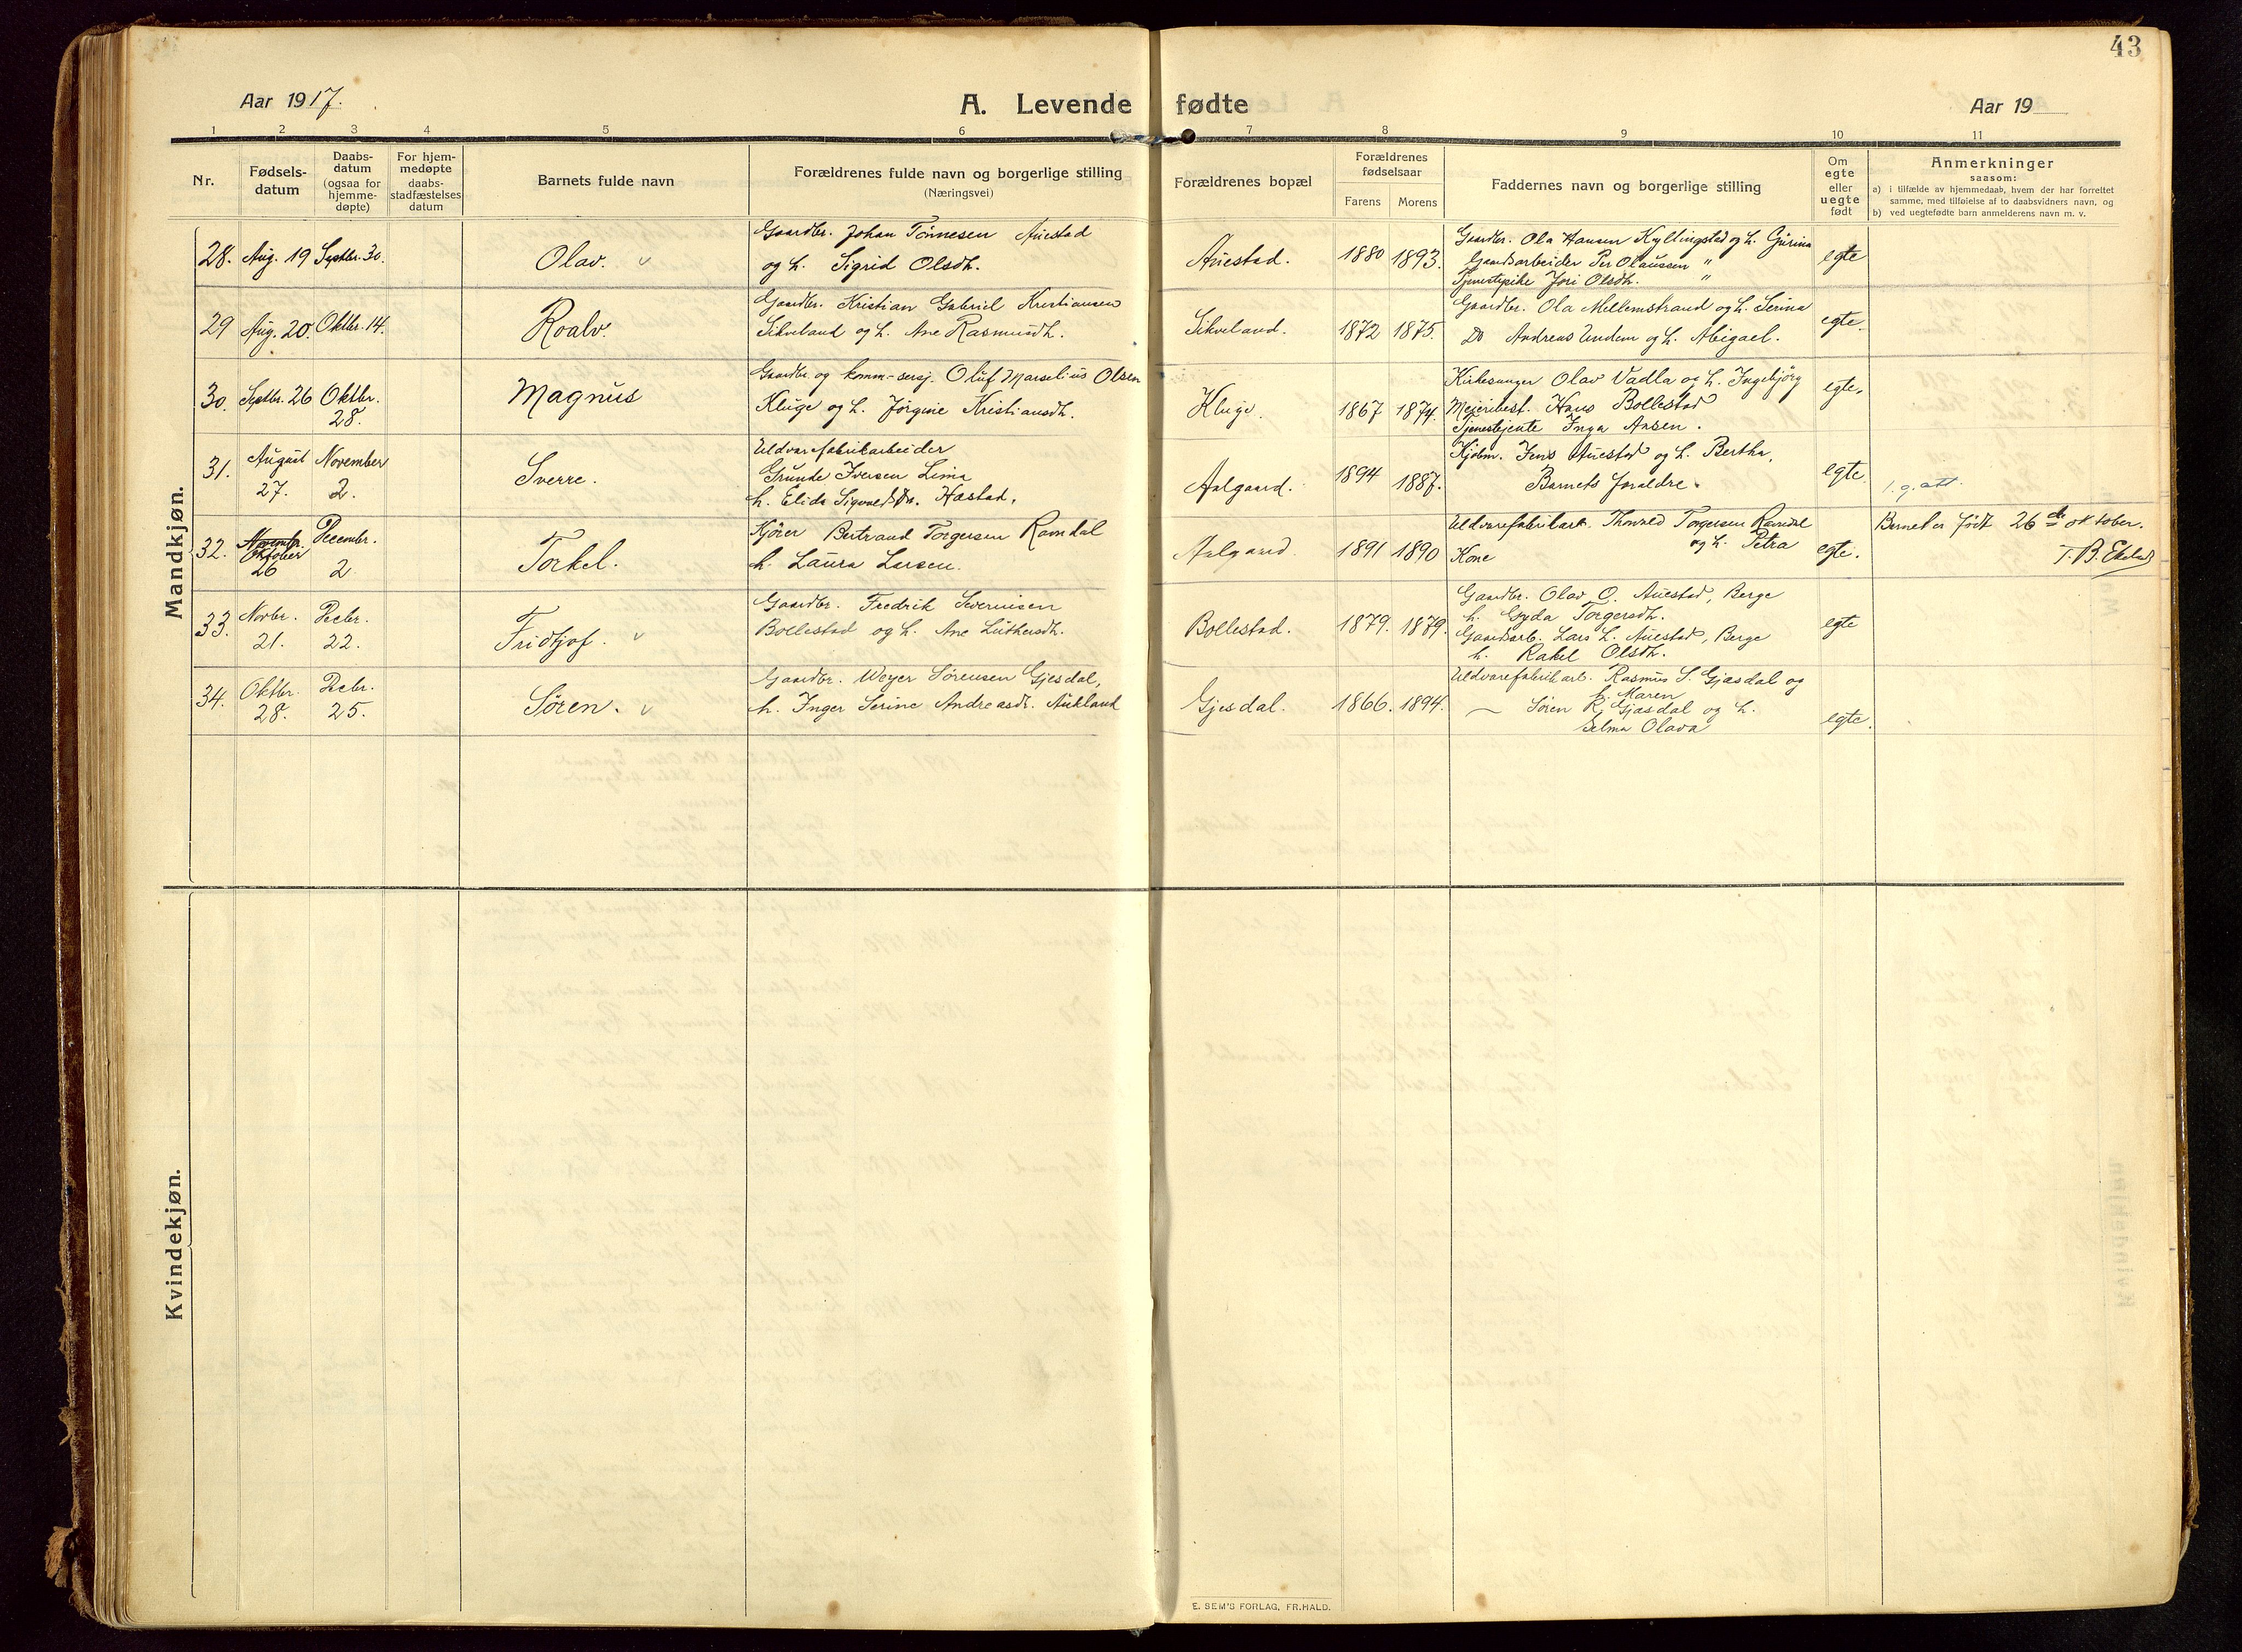 43
Aar 1917.
A. Levende fødte
Aar 19
1 2 3 4 5 6 7 8 9 10 11
Nr.
Fødsels-
datum
Daabs-
datum
(ogsaa for
hjemme-
døpte)
For hjem-
medøpte
daabs-
stadfæstelses
datum
Barnets fulde navn
Forældrenes fulde navn og borgerlige stilling
(Næringsvei)
Forældrenes bopæl
Forældrenes
fødselsaar
Farens Morens
Faddernes navn og borgerlige stilling
Om
egte
eller
uegte
født
Anmerkninger
saasom:
a) i tilfælde av hjemmedaab, hvem der har forrettet
samme, med tilføielse af to daabsvidners navn, og
b) ved uegtefødte barn anmelderens navn m. v.
Mandkjøn.
28. Aug. 19 Septbr. 30.
Olav. v
Gaardbr. Johan Tönnesen Auestad
og h. Sigrid Olsdh.
Auestad.
1880 1893.
Gaardbr. Ola Hansen Kyllingstad og h. Gurina
Gaardsarbeider Per Olaussen "
Tjenestepike Jori Olsdh. "
egte
29 Aug. 20. Oktbr. 14.
Roalv.
Gaardbr. Kristian Gabriel Kristiansen
Sikveland og h. Ane Rasmusdh.
Sikveland.
1872 1875.
Gaardbr. Ola Mellemstrand og h. Serina
Do Andreas Undem og h. Abigael.
egte.
30. Septbr. 26 Oktbr.
28.
Magnus
Gaardbr. og komm-sersj. Oluf Marselius Olsen
Kluge og h. Jørgine Kristiansdh.
Kluge.
1867 1874.
Kirkesanger Olav Vadla og h. Ingebjörg
Meieribest. Hans Bollestad
Tjenestejente Inga Aasen.
egte.
31. August November
27. 2.
Sverre.
Uldvarefabrikarbeider
Grunde Iversen Lima
h. Elida Sigvaldsdr. Hæstad.
Aalgaard.
1894 1887.
Kjøbm. Jens Auestad og h. Bertha.
Barnets foraldre.
egte.
1. g. att.
32. Novembr. December.
Oktober
26 2
Torkel.
Kjörer Bertrand Torgersen Ramdal
h. Laura Larsen.
Aalgaard.
1891 1890
Uldvarefabrikarb. Thorvald Torgersen Ramdal
og h. Petra
Kone
egte.
Barnet er født 26de oktober.
T. B.
33. Novbr. Decbr.
21. 22.
Fridtjof. v
Gaardbr. Fredrik Severinsen
Bollestad og h. Ane Luthersdh.
Bollestad.
1879. 1879.
Gaardbr. Olav O. Auestad, Berge
h. Gyda Torgersdh.
Gaardsarb. Lars L. Auestad, Berge
h. Rakel Olsdh.
egte
34. Oktbr. Decbr.
28. 25.
Søren. v
Gaardbr. Weyer Sørensen Gjesdal,
h. Inger Serine Andreasdr. Aukland
Gjesdal.
1866. 1894.
Uldvarefabrikarb. Rasmus S. Gjæsdal og
h. Maren
— Sören R. Gjæsdal og h.
Selma Olava
egte.
Kvindekjøn.
E. SEM'S FORLAG, FR.HALD.